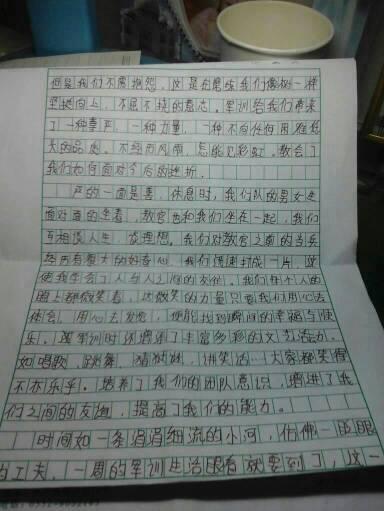 但是我们不需抱怨，这是在磨练我们像树一样
坚挺向上，不屈不挠的意志。军训给我们带来
了一种尊严，一种力量，一种不向任何困难低
头的品质。不经历风风雨，怎能见彩虹。教会了
我们如何面对今后的挫折。
严的一面是喜，休息时，我们队的男女是
面对面的坐着，教官也和我们坐在一起，我们
互相谈人生，谈理想。我们对教官之前的当兵
经历有着大的好奇心，我们很速打成一片，这
使我学会了人与人之间的友谊。我们每个人的
脸上都微笑着，这微笑的力量只要我们用心去
体会，用心去发现，便能找到瞬间的幸福与快
乐。现军训时还增添了丰富多彩的文艺活动，
如唱歌，跳舞，猜谜，讲笑话…大家都笑得
不亦乐乎。培养了我们的团队意识，增进了我
们之间的友谊，提高了我们的能力。
时间如一条涓涓细流的小河，仿佛一眨眼
的工夫，一周的军训生活眼看就要到了，这一